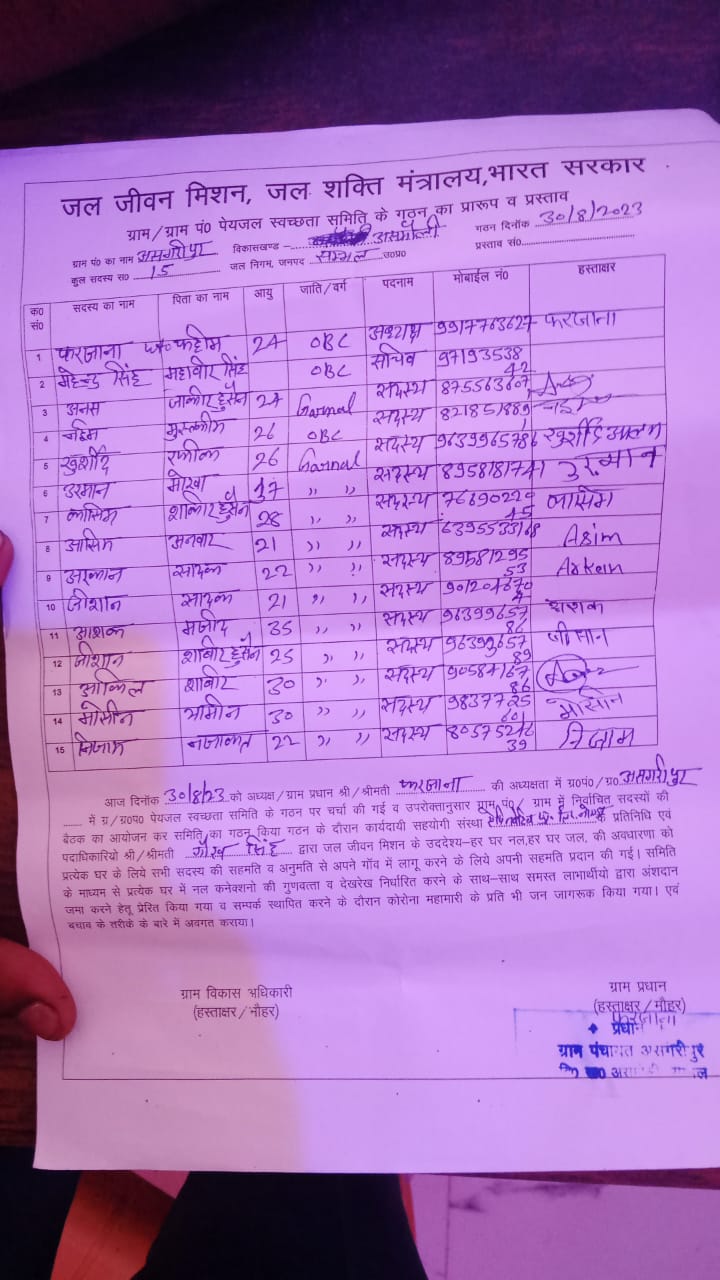 जल जीवन मिशन, जल शक्ति मंत्रालय,भारत सरकार
ग्राम/ग्राम पं0 पेयजल स्वच्छता समिति के गठन का प्रारूप व प्रस्ताव
ग्राम पं0 का नाम असगरीपुर विकासखण्ड - असमोली गठन दिनाँक 30/8/2023
कुल सदस्य स0 15 जल निगम, जनपद सम्भल उ0प्र0 प्रस्ताव सं0
क0 सं0 सदस्य का नाम पिता का नाम आयु जाति/वर्ग पदनाम मोबाईल नं0 हस्ताक्षर
1 फरजाना w/o फहीम 24 OBC अध्यक्ष 9917763627 फरजाना
2 महेन्द्र सिंह महावीर सिंह OBC सचिव 9719353842
3 अनस जाकीर हुसैन 24 Garnal सदस्य 875563607
4 नईम मुस्लीम 26 OBC सदस्य 821851889 नईम
5 खुर्शीद रफीक 26 Garnal सदस्य 9639965786 खुर्शीद आलम
6 उस्मान 〃 〃 सदस्य 8958181741 उस्मान
7 कासिम शाकीर हुसैन 28 〃 〃 सदस्य 7669022945 कासिम
8 आसिम अनवार 21 〃 〃 सदस्य 6395533168 Asim
9 अरकान सादक 22 〃 〃 सदस्य 8958129553 Arkan
10 जीशान सादक 21 〃 〃 सदस्य
11 आशक मजीद 35 〃 〃 सदस्य 9639965786 आशक
12 जीशान शाबीर हुसैन 25 〃 〃 सदस्य 9639965789 जीसान
13 आकिल शाबीर 30 〃 〃 सदस्य 9058716786
14 मोसीन अमीन 30 〃 〃 सदस्य 98377 मोसीन
15 निजाम नजाकत 22 〃 〃 सदस्य 39 निजाम
आज दिनाँक 30/8/23 को अध्यक्ष/ग्राम प्रधान श्री/श्रीमती फरजाना की अध्यक्षता में ग्र0पं0/ग्र0 असगरीपुर
में ग्र/ग्र0प0 पेयजल स्वच्छता समिति के गठन पर चर्चा की गई व उपरोक्तानुसार ग्राम पं0/ ग्राम में निर्वाचित सदस्यों की
बैठक का आयोजन कर समिति का गठन किया गठन के दौरान कार्यदायी सहयोगी संस्था के प्रतिनिधि एवं
पदाधिकारियो श्री/श्रीमती सिंह द्वारा जल जीवन मिशन के उददेश्य-हर घर नल,हर घर जल, की अवधारणा को
प्रत्येक घर के लिये सभी सदस्य की सहमति व अनुमति से अपने गाँव में लागू करने के लिये अपनी सहमति प्रदान की गई। समिति
के माध्यम से प्रत्येक घर में नल कनेक्शनो की गुणवत्ता व देखरेख निर्धारित करने के साथ-साथ समस्त लाभार्थीयो द्वारा अंशदान
जमा करने हेतू प्रेरित किया गया व सम्पर्क स्थापित करने के दौरान कोरोना महामारी के प्रति भी जन जागरूक किया गया। एवं
बचाव के तरीके के बारे में अवगत कराया।
ग्राम विकास अधिकारी ग्राम प्रधान
(हस्ताक्षर/मौहर) (हस्ताक्षर/मौहर)
फरजाना
प्रधान
ग्राम पंचायत असगरीपुर